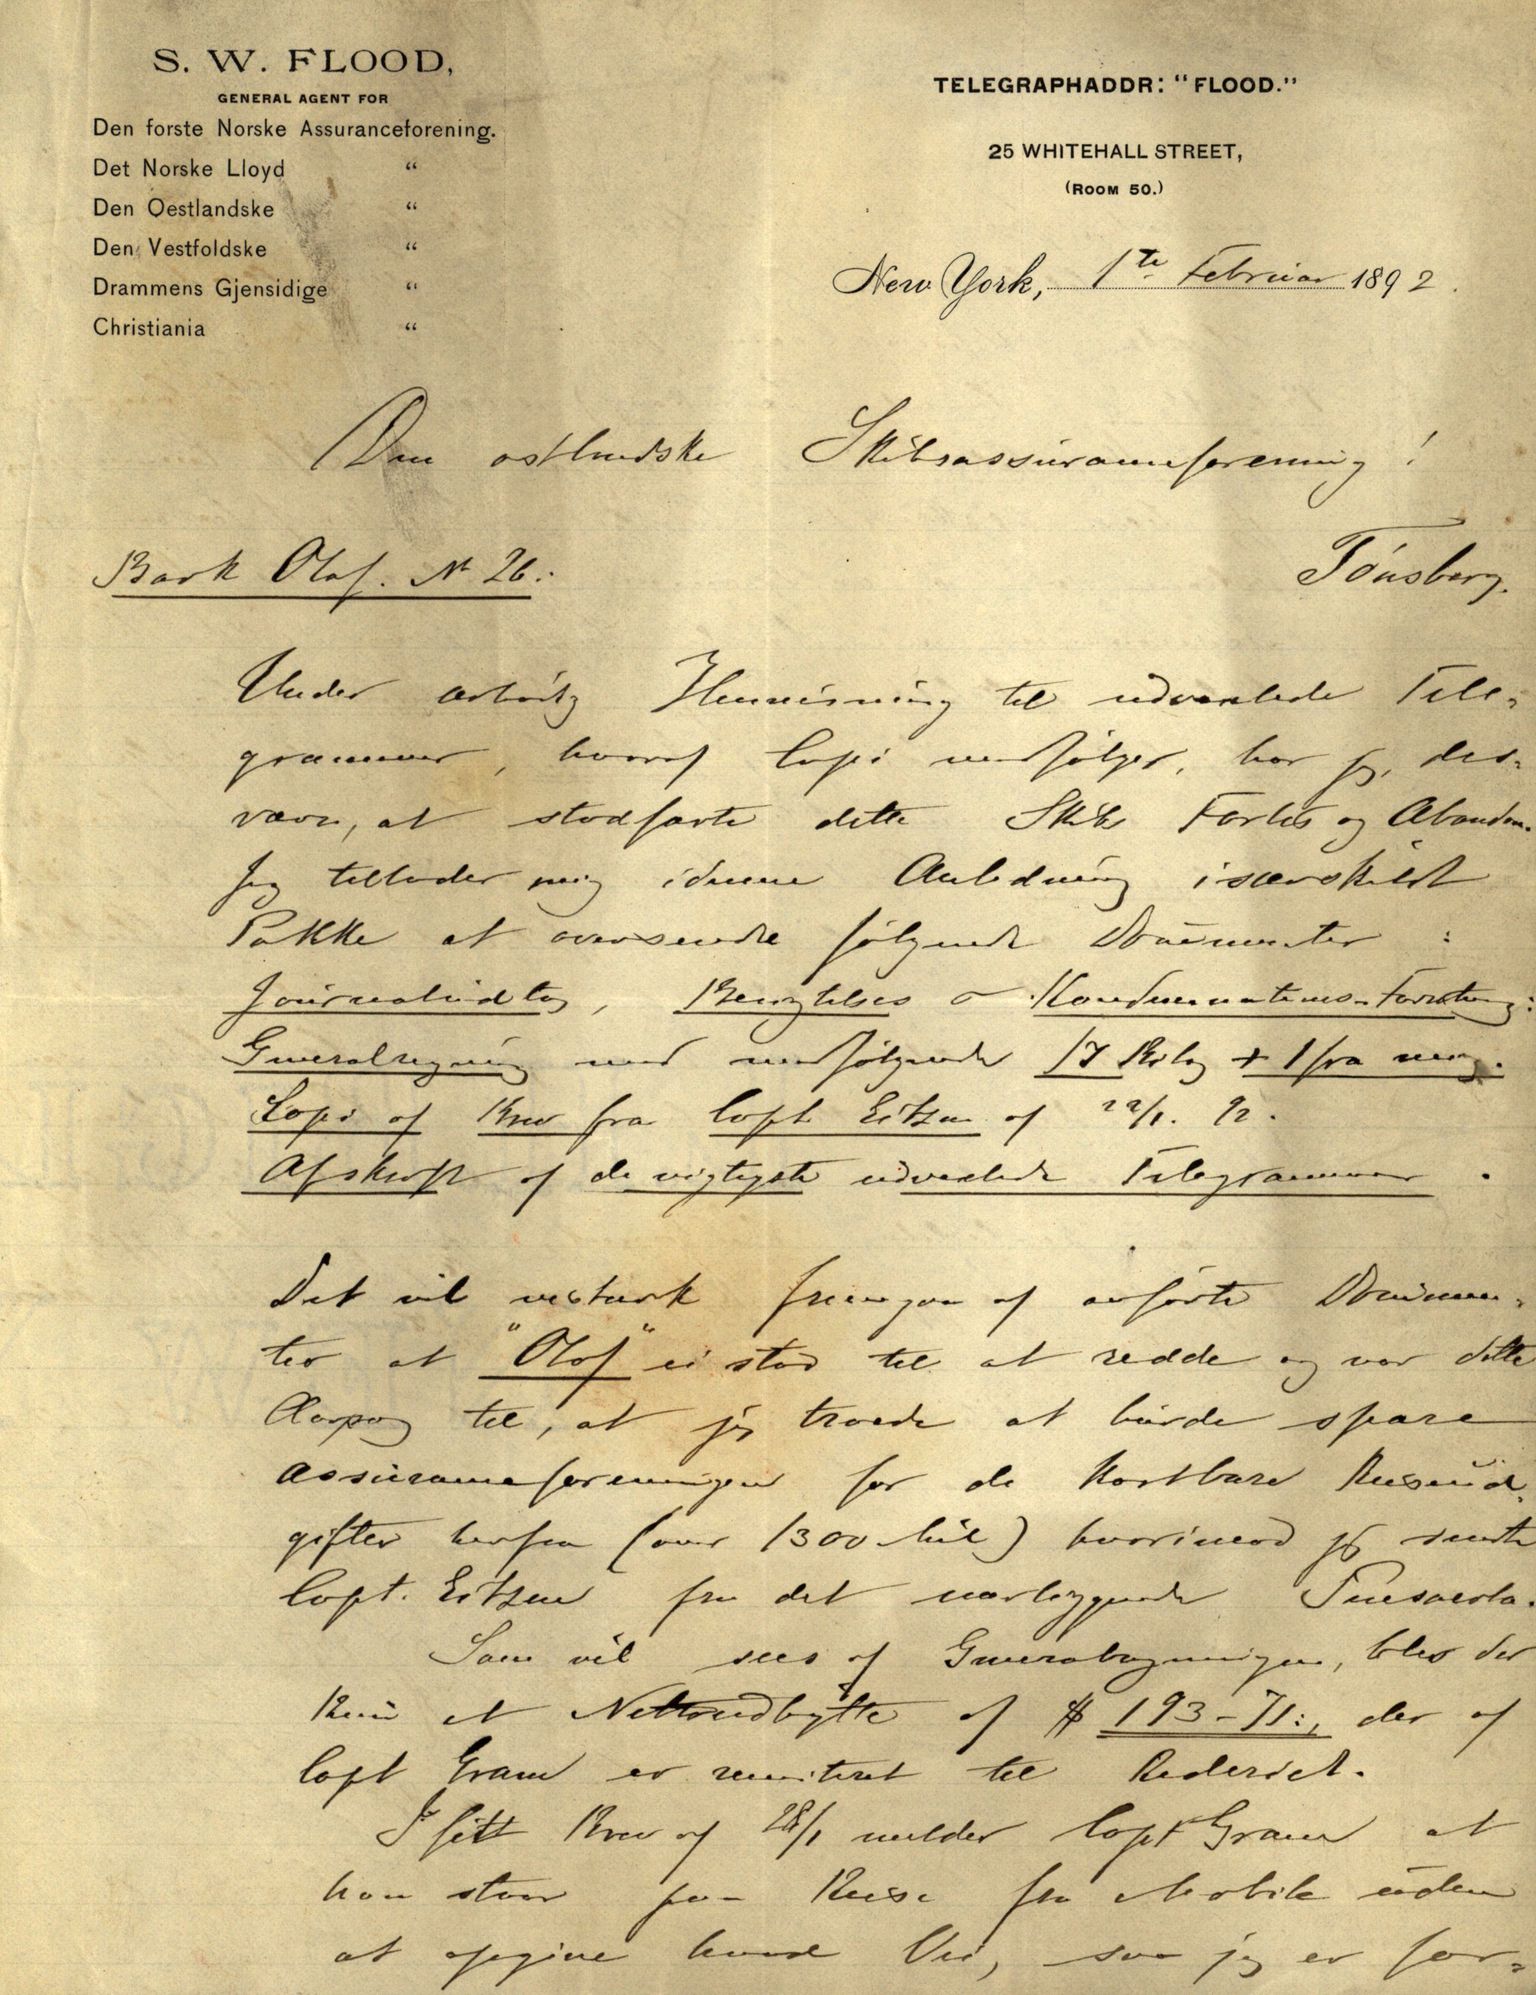 S. W. FLOOD,
GENERAL AGENT FOR
Den forste Norske Assuranceforening.
Det Norske Lloyd "
Den Oestlandske "
Den Vestfoldske "
Drammens Gjensidige "
Christiania "
TELEGRAPHADDR: "FLOOD."
25 WHITEHALL STREET,
(ROOM 50.)
New York, 1te Februar 1892.
Den østlandske Skibsassuranceforening!
Tønsberg.
Bark Olaf. No 26:
Under ærbødig Henvisning til udvexlede Tele-
grammer, hvoraf Copi medfølger, har jeg, des-
værre, at stadfæste dette Skibs Forlis og Abandon.
Jeg tillader mig i denne Anledning i særskilt
Pakke at oversende følgende Documenter :
Journaludtog, Besigtelses & Kondemnations-Forretning:
Generalregning med medfølgende 17 Bilag + 1 fra mig.
Copi af Brev fra Capt. Eitzen af 22/1. 92.
Afskrift af de vigtigste udvexlede Telegrammer.
Det vil bestærk fremgaa af anførte Documen-
ter at "Olaf" ei stod til at redde og var dette
Aarsag til, at jeg troede at burde spare
Assuranceforeningen for de kostbare Reiseud-
gifter herfra (over 1300 Mil) hvorimod jeg sendte
Capt. Eitzen fra det nærliggende Pensacola.
Som vil sees af Generalregningen, blev der
kun et Nettoudbytte af $ 193-71:, der af
Capt Gram er remitteret til Rederiet.
I sidt Brev af 28/1 melder Capt Gram at
han staar paa Reise fra Mobile uden
at opgive hvad Vei, saa jeg er for-